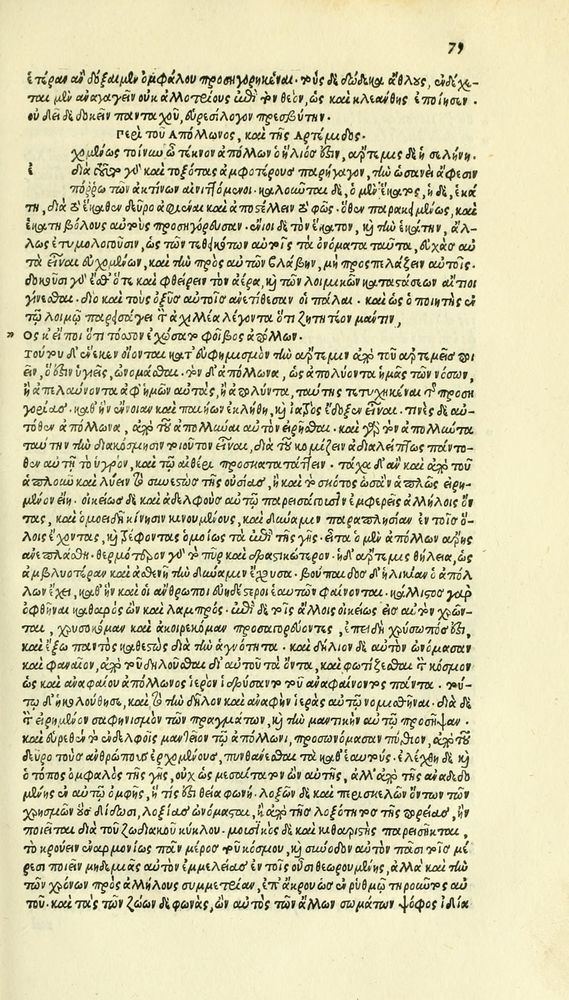 79
ἑτέραν ἂν δόξαιμεν ὀμφάλου προσηγορηκέναι. τοὺς δὲ δώδεκα ἄθλους, ἐνδέχε-
ται μὲν ἀναγαγεῖν οὐκ ἀλλοτρίως ἐπὶ τὸν θεὸν, ὡς καὶ κλεάνθης ἐποίησεν.
οὐ δεῖ δὲ δοκεῖν πανταχοῦ, εὑρεσίλογον πρεσβύτην.
Περὶ τοῦ Ἀπόλλωνος, καὶ τῆς Ἀρτέμιδος.
ἐχομένως τοίνυν ὦ τέκνον ἀπόλλων ὁ ἥλιός ἐστιν, ἄρτεμις δὲ ἡ σελήνη.
διὰ τοῦτο γὸ καὶ τοξότας ἀμφοτέρους παρήγαγον, τὴν ὡσανεὶ ἄφεσιν
πόρρω τῶν ἀκτίνων αἰνιττόμενοι. καλοῦνται δὲ, ὁ μὲν ἕκατος, ἡ δὲ, ἑκά-
τη, διὰ τὸ ἕκαθεν δεῦρο ἀφιέναι καὶ ἀποστέλλειν τὸ φῶς. ὅθεν παρακειμένως, καὶ
ἑκατηβόλους αὐτοὺς προσηγόρευσαν. ἔνιοι δὲ τὸν ἕκατον, καὶ τὴν ἑκάτην, ἄλ-
λως ἐτυμολογοῦσιν, ὡς τῶν τεθεικότων αὐτοῖς τὰ ὀνόματα ταῦτα, ἑκὰς αὐ
τὰ εἶναι εὐχομένων, καὶ τὴν πρὸς αὐτῶν βλάβην, μὴ προσπελάζειν αὐτοῖς.
δοκοῦσι γὸ ἔσθ' ὅτε καὶ φθείρειν τὸν ἀέρα, καὶ τῶν λοιμικῶν καταστάσεων αἴτιοι
γίνεσθαι. διὸ καὶ τοὺς ὀξεῖς αὐτοῖς ἀνετίθεσαν οἱ πάλαι. καὶ ὡς ὁ ποιητὴς ἐν
τῷ λοιμῷ παρεισάγει τὸν ἀχιλλέα λέγοντα ὅτι ζητητέον μάντιν,
„ Ὅς κ' εἴποι ὅτι τόσσον ἐχώσατο φοῖβος ἀπόλλων.
Τούτου δ' ἕνεκεν οἴονται κατ' εὐφημισμὸν τὴν ἄρτεμιν ἀπὸ τοῦ ἀρτεμεῖς ποι
εῖν, ὅ ἐστιν ὑγιεῖς, ὠνομάσθαι. τὸν δ' ἀπόλλωνα, ὡς ἀπολύοντα ἡμᾶς τῶν νόσων,
ἢ ἀπελαύνοντα ἀφ' ἡμῶν αὐτὰς, ἢ ἀπολύντα, ταύτης τετυχηκέναι τῆς προση
γορίας. καθ' ἣν ἔννοιαν καὶ παιήων ἐκλήθη, καὶ ἰατρὸς ἔδοξεν εἶναι. τινὲς δὲ αὐ-
τόθεν ἀπόλλωνα, ἀπὸ τοῦ ἀπολλύναι αὐτὸν εἰρῆσθαι. καὶ γὸ τὸν ἀπολλύντα
ταύτην τὴν διακόσμησιν τοῦτον εἶναι, διὰ τοῦ κομίζειν ἀδιαλείπτως πάντο-
θεν αὐτῇ τὸ ὑγρὸν, καὶ τῷ αἰθέρι προσκατατάττειν. τάχα δ' ἂν καὶ ἀπὸ τοῦ
ἁπλοῦν καὶ λύειν τὸ συνεστὸς τῆς οὐσίας, ἢ καὶ τὸ σκότος ὡσὰν ἁπλῶς εἰρη-
μένον εἴη. οἰκείως δὲ καὶ ἀδελφοὺς αὐτῷ παρεισάγουσιν ἐμφερεῖς ἀλλήλοις ὄν
τας, καὶ ὁμοειδῆ κίνησιν κινουμένους, καὶ δύναμιν παραπλησίαν ἐν τοῖς ὅ-
λοις ἔχοντας, καὶ τρέφοντας ὁμοίως τὰ ἐπὶ τῆς γῆς. εἶτα ὁ μὲν ἀπόλλων ἄρρης
ἀνεπλάσθη. θερμότερον γὸ τὸ πῦρ καὶ δραστικώτερον. ἡ δ' ἄρτεμις θήλεια, ὡς
ἀμβλυτέραν καὶ ἀσθενῆ τὴν δύναμιν ἔχουσα. βούπαιδος δ' ἡλικίαν ὁ ἀπόλ
λων ἔχει, καθ' ἣν καὶ οἱ ἄνθρωποι εὐειδέστεροι ἑαυτῶν φαίνονται. κάλλιστος γὰρ
ὀφθῆναι καθαρὸς ὢν καὶ λαμπρός. ἐπὶ δὲ τοῖς ἄλλοις οἰκείως εἰς αὐτὸν χρῶν-
ται, χρυσοκόμαν καὶ ἀκειρεκόμαν προσαγορεύοντες, ἐπειδὴ χρυσωπός ἐστι,
καὶ ἔξω παντὸς καθεστὼς διὰ τὴν ἁγνότητα. καὶ δήλιον δὲ αὐτὸν ὠνόμασαν
καὶ φαναῖον, ἀπὸ τοῦ δηλοῦσθαι δι' αὐτοῦ τὰ ὄντα, καὶ φωτίζεσθαι τὸν κόσμον
ὡς καὶ ἀναφαίου ἀπόλλωνος ἱερὸν ἱδρύσαντο τοῦ ἀναφαίνοντος πάντα. τού-
τῳ δ' ἠκολούθησε, καὶ τὸ τὴν δῆλον καὶ ἀνάφην ἱερὰς αὐτῷ νομισθῆναι. διὰ δὲ
τὸν εἰρημένον σαφηνισμὸν τῶν πραγμάτων, καὶ τὴν μαντικὴν αὐτῷ προσῆψαν.
καὶ εὑρεθὲν τὸ ἐν δελφοῖς μαντεῖον τῷ ἀπόλλωνι, προσωνόμασαν πύθιον, ἀπὸ τοῦ
δεῦρο τοὺς ἀνθρώπους ἐρχομένους, πυνθάνεσθαι τὰ καθ' ἑαυτούς. ἐλέχθη δὲ καὶ
ὁ τόπος ὀμφαλὸς τῆς γῆς, οὐχ ὡς μεσαίτατον ὢν αὐτῆς, ἀλλ' ἀπὸ τῆς ἀναδιδο
μένης ἐν αὐτῷ ὀμφῆς, ἥτις ἐστὶ θεία φωνή. λοξῶν δὲ καὶ περισκελῶν ὄντων τῶν
χρησμῶν οὓς δίδωσι, λοξίας ὠνόμασται, ἢ ἀπὸ τῆς λοξότητος τῆς πορείας, ἣν
ποιεῖται διὰ τοῦ ζωδιακοῦ κύκλου. μουσικὸς δὲ καὶ κιθαριστὴς παρεισῆκται,
τὸ κρούειν ἐναρμονίως πᾶν μέρος τοῦ κόσμου, καὶ συνῳδὸν αὐτὸν πᾶσι τοῖς μέ
ρεσι ποιεῖν μηδεμιᾶς αὐτῶν ἐμμελείας ἐν τοῖς οὖσι θεωρουμένης, ἀλλὰ καὶ τὴν
τῶν χρόνων πρὸς ἀλλήλους συμμετρίαν, ἐπ' ἄκρου ὡς ἐν ῥυθμῷ τηροῦντος αὐ
τοῦ. καὶ τὰς τῶν ζώων δὲ φωνὰς, ὧν αὐτὸς τῶν ἄλλων σωμάτων ψόφος ἰδία